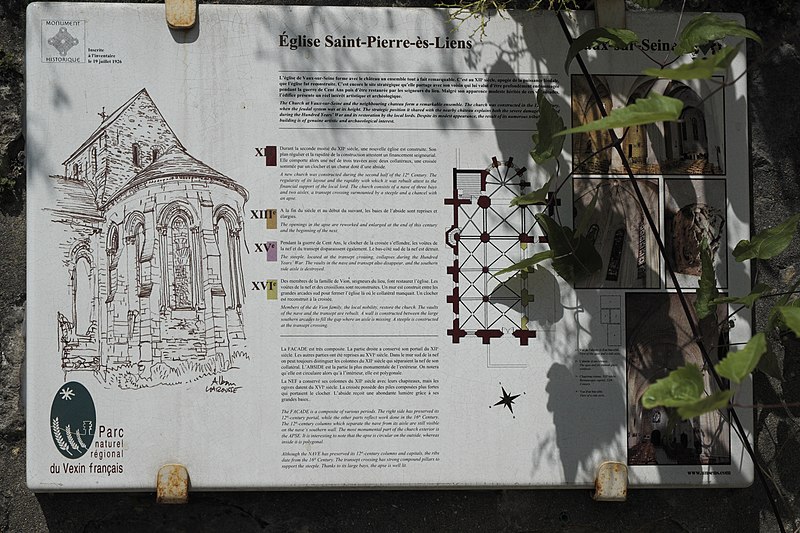 MONUMENT
HISTORIQUE
Inscrite
à l'inventaire
le 19 juillet 1926
Église Saint-Pierre-ès-Liens
L'église de Vaux-sur-Seine forme avec le château un ensemble tout à fait remarquable. C'est au XIIe siècle, apogée de la puissance féodale
que l'église fut reconstruite. C'est encore le site stratégique qu'elle partage avec son voisin qui lui valut d'être profondément endommagée
pendant la guerre de Cent Ans puis d'être restaurée par les seigneurs du lieu. Malgré son apparence modeste
l'édifice présente un réel intérêt artistique et archéologique.
The Church of Vaux-sur-Seine and the neighbouring chateau form a remarkable ensemble. The church was constructed in the
when the feudal system was at its height. The strategic position it shared with the nearby chateau explains both the severe damage
during the Hundred Years' War and its restoration by the local lords. Despite its modest appearance, the
building is of genuine artistic and archaeological interest.
Durant la seconde moitié du XIIe siècle, une nouvelle église est construite. Son
plan régulier et la rapidité de la construction attestent un financement seigneurial.
Elle comporte alors une nef de trois travées avec deux collatéraux, une croisée
sommée par un clocher et un chœur dont il soit abside.
A new church was constructed during the second half of the 12th Century. The
regularity of its layout and the rapidity with which it was rebuilt attest to the
financial support of the local lord. The church consists of a nave of three bays
and two aisles, a transept crossing surmounted by a steeple and a chancel with
an apse.
XIIIe
A la fin du siècle et au début du suivant, les baies de l'abside sont reprises et
élargies.
The openings in the apse are reworked and enlarged at the end of this century
and the beginning of the next.
XVe
Pendant la guerre de Cent Ans, le clocher de la croisée s'effondre, les voûtes de
la nef et du transept disparaissent également. Le bas-côté sud de la nef est détruit.
The steeple, located at the transept crossing, collapses during the Hundred
Years' War. The vaults in the nave and transept also disappear, and the southern
side aisle is destroyed.
XVIe
Des membres de la famille de Vion, seigneurs du lieu, font restaurer l'église. Les
voûtes de la nef et des croisillons sont reconstruites. Un mur est construit entre les
grandes arcades sud pour fermer l'église là où le collatéral manquait. Un clocher
est reconstruit à la croisée.
Members of the de Vion family, the local nobility, restore the church. The vaults
of the nave and the transept are rebuilt. A wall is constructed between the large
southern arcades to fill the gap where an aisle is missing. A steeple is constructed
at the transept crossing.
La FACADE est très composite. La partie droite a conservé son portail du XIIe
siècle. Les autres parties ont été reprises au XVIe siècle. Dans le mur sud de la nef
on peut toujours distinguer les colonnes du XIIe siècle qui séparaient la nef de son
collatéral. L'ABSIDE est la partie la plus monumentale de l'extérieur. On notera
qu'elle est circulaire alors qu'à l'intérieur, elle est polygonale.
La NEF a conservé ses colonnes du XIIe siècle avec leurs chapiteaux, mais les
ogives datent du XVIe siècle. La croisée possède des piles composées plus fortes
qui portaient le clocher. L'abside reçoit une abondante lumière grâce à ses
grandes baies.
The FACADE is a composite of various periods. The right side has preserved its
12th-century portal, while the other parts reflect work done in the 16th Century.
The 12th-century columns which separate the nave from its aisle are still visible
on the nave's southern wall. The most monumental part of the church exterior is
the APSE. It is interesting to note that the apse is circular on the outside, whereas
inside it is polygonal.
Although the NAVE has preserved its 12th-century columns and capitals, the ribs
date from the 16th Century. The transept crossing has strong compound pillars to
support the steeple. Thanks to its large bays, the apse is well lit.
Parc
naturel
régional
du Vexin français